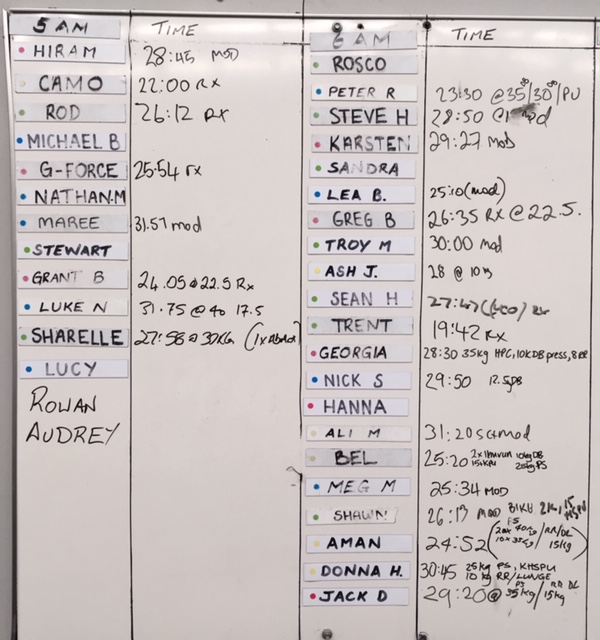 5 AM TIME
HIRAM 28:45 MOD
CAMO 22:00 RX
ROD 26:12 RX
MICHAEL B
G-FORCE 25:54 rx
NATHAN.M
MAREE 31.57 mod
STEWART
GRANT B 24.05 @ 22.5 Rx
LUKE N 31.75 @ 40 17.5
SHARELLE 27:58 @ 30KG
LUCY
ROWAN
AUDREY
6 AM TIME
ROSCO
PETER R 23:30 @ 35 /30 /PU
STEVE H 28:50
KARSTEN 29:27 mod
SANDRA
LEA B. 25:10 (mod)
GREG B 26:35 RX @ 22.5.
TROY M 30:00 Mod
ASH J. 28 @ 10
SEAN H 27:47
TRENT 19:42 RX
GEORGIA 28:30 35kg HPC, 10K DB press, 8
NICK S 29:50
HANNA
ALI M 31:20 mod
BEL 25:20
MEG M 25:34 MOD
SHAWN 26:13 MOD
AMAN 24:52 RR/DL 15kg
DONNA H. 30:45 25kg PS, KHSPU
10 kg RR/LUNGE
JACK D 29:20 @ 35kg/ 15kg